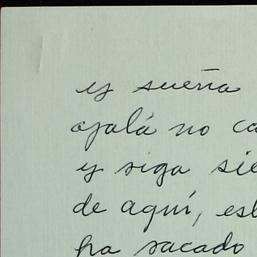 y sueña
ojalá no ca
y siga sie
de aquí, est
ha sacado